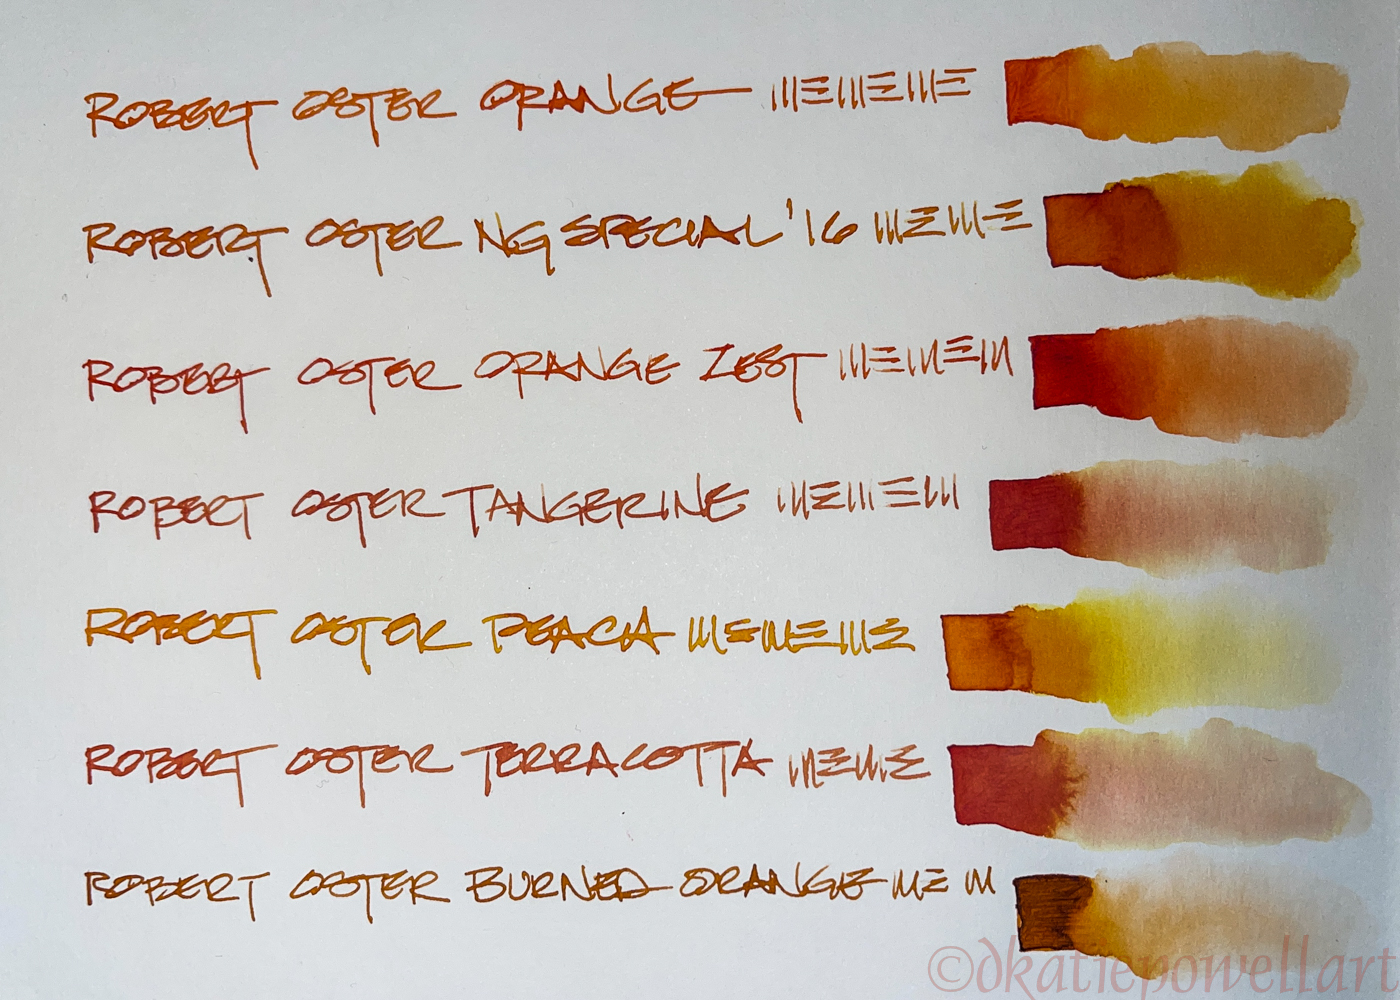 ROBERT OSTER ORANGE
ROBERT OSTER NG SPECIAL '16
ROBERT OSTER ORANGE ZEST
ROBERT OSTER TANGERINE
ROBERT OSTER PEACH
ROBERT OSTER TERRACOTTA
ROBERT OSTER BURNED ORANGE
©dkatiepowellart